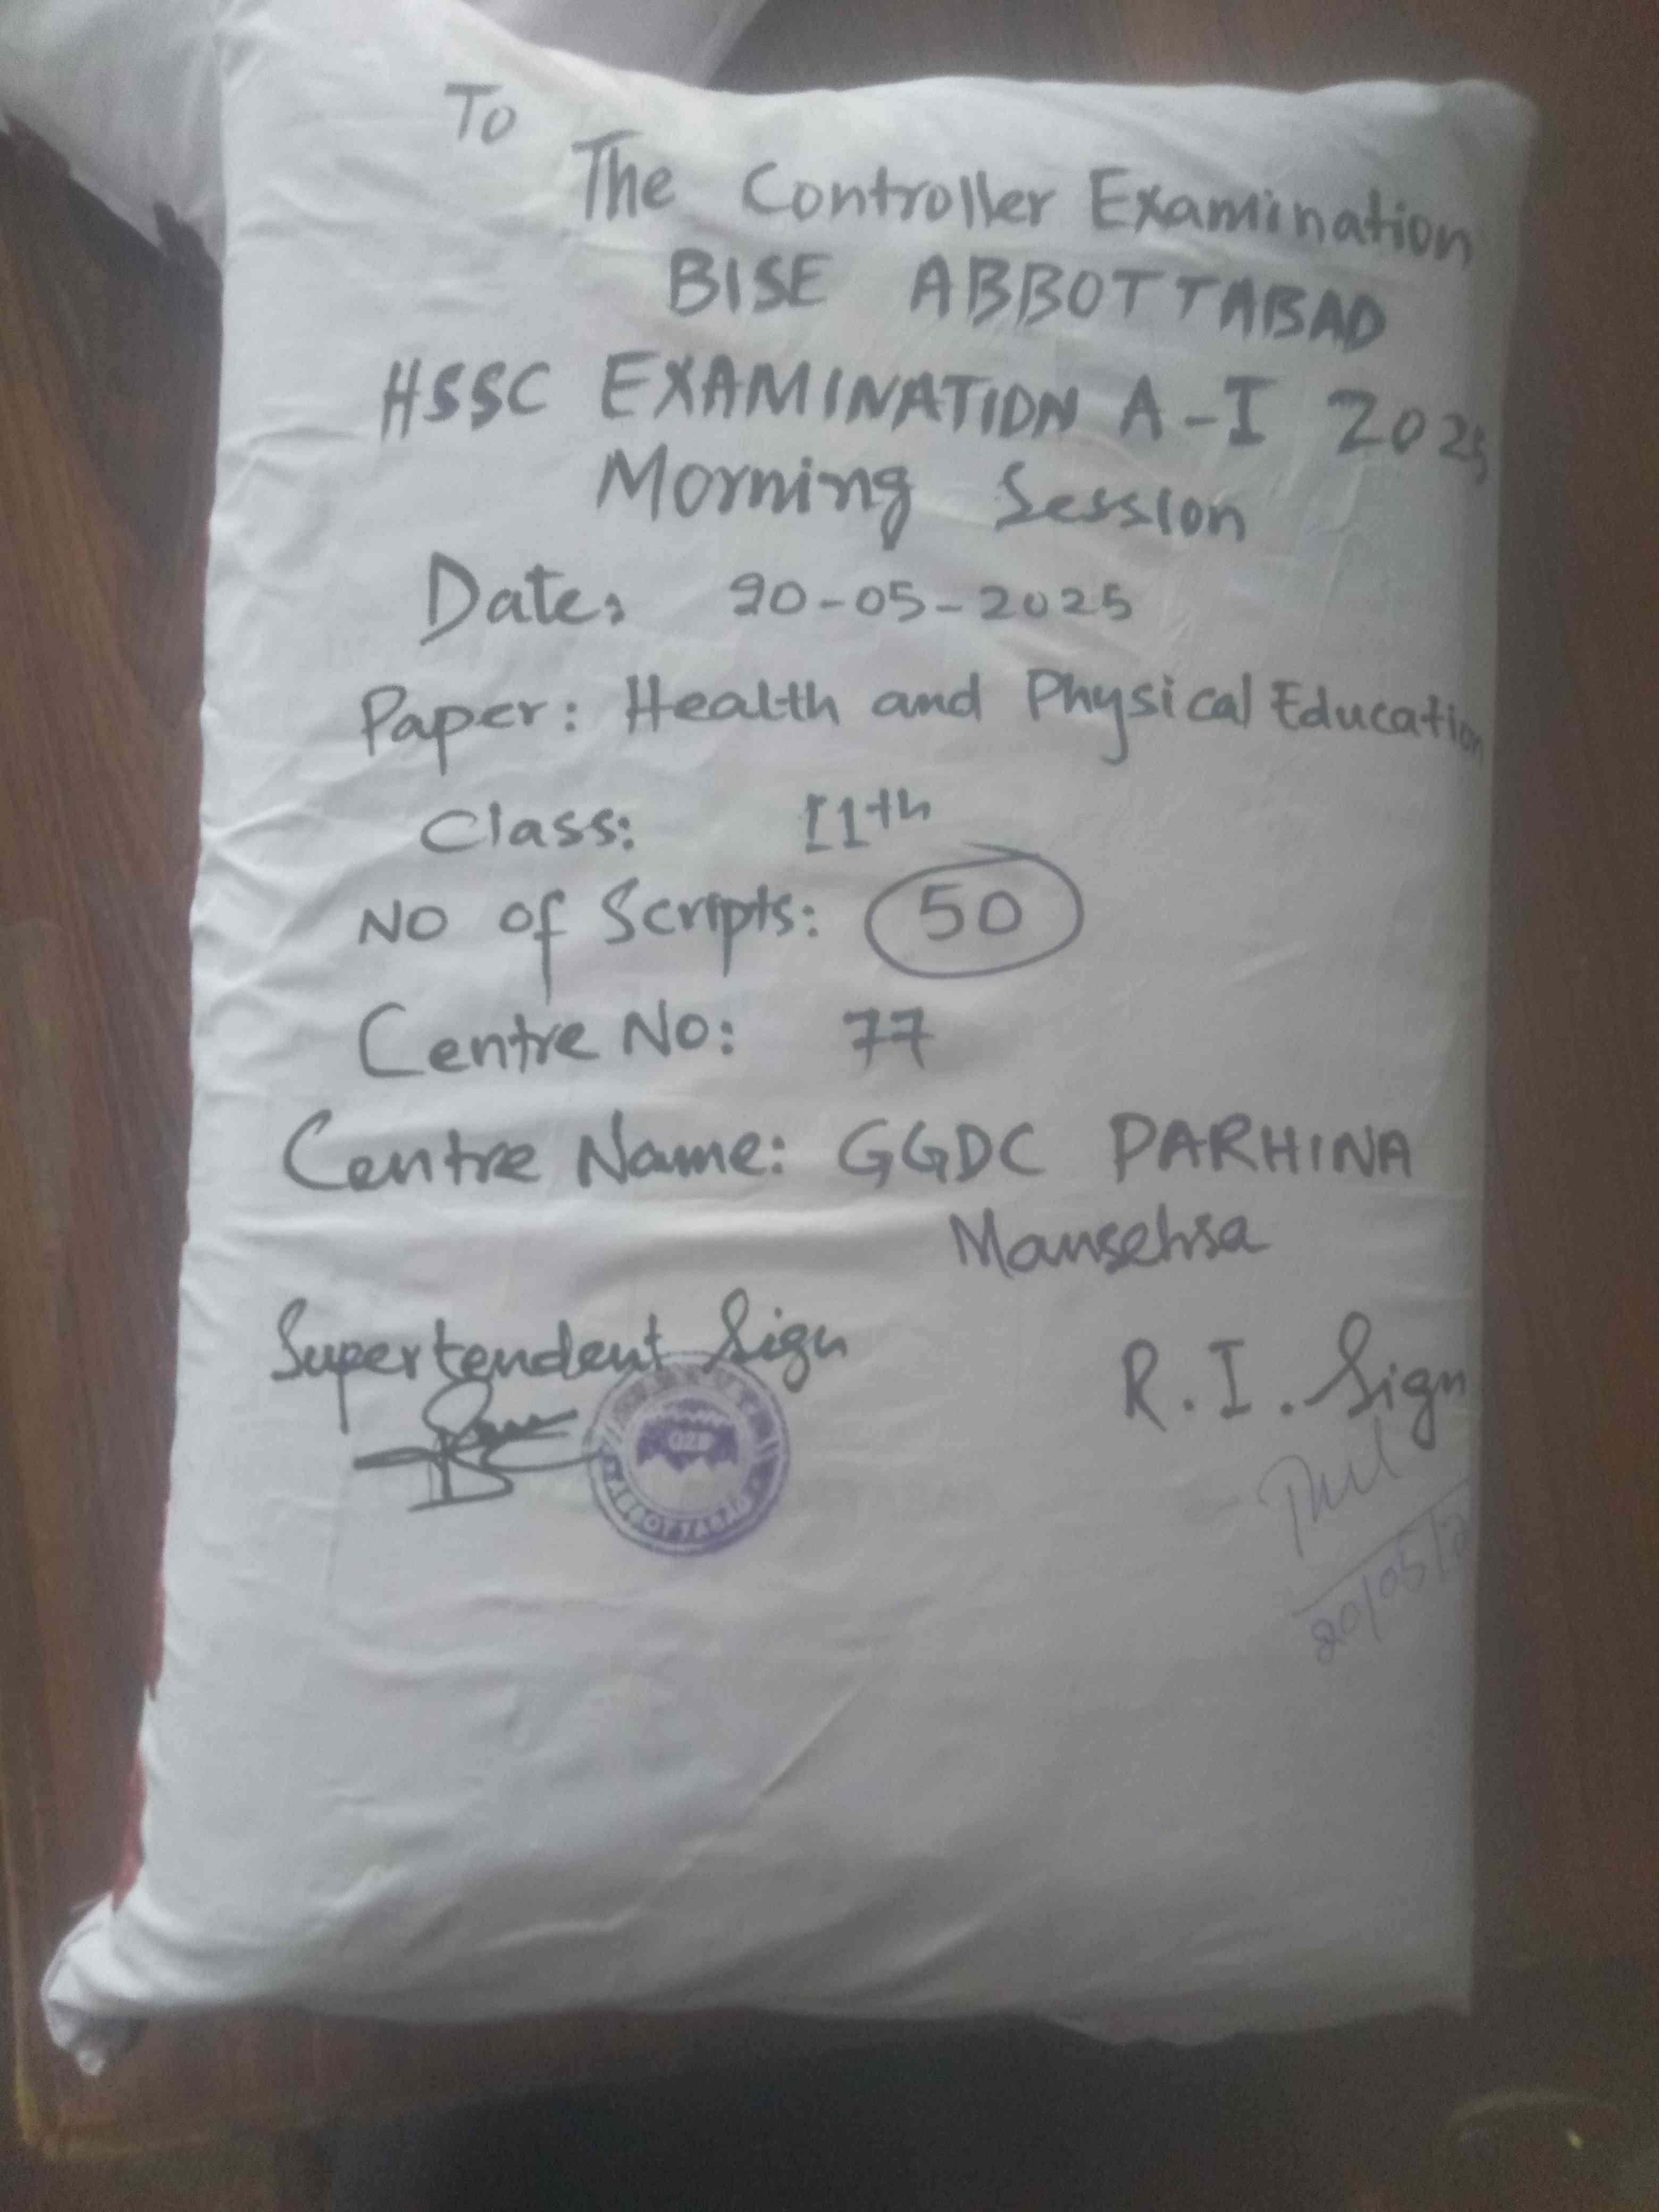 To
The Controller Examination
BISE ABBOTTABAD
HSSC EXAMINATION A-I 2025
Morning Session
Date: 20-05-2025
Paper: Health and Physical Education
Class: 11th
NO of Scripts: 50
Centre No: 77
Centre Name: GGDC PARHINA
Mansehra
Supertendent Sign
R.I. Sign
ABBOTTABAD
20/05/2